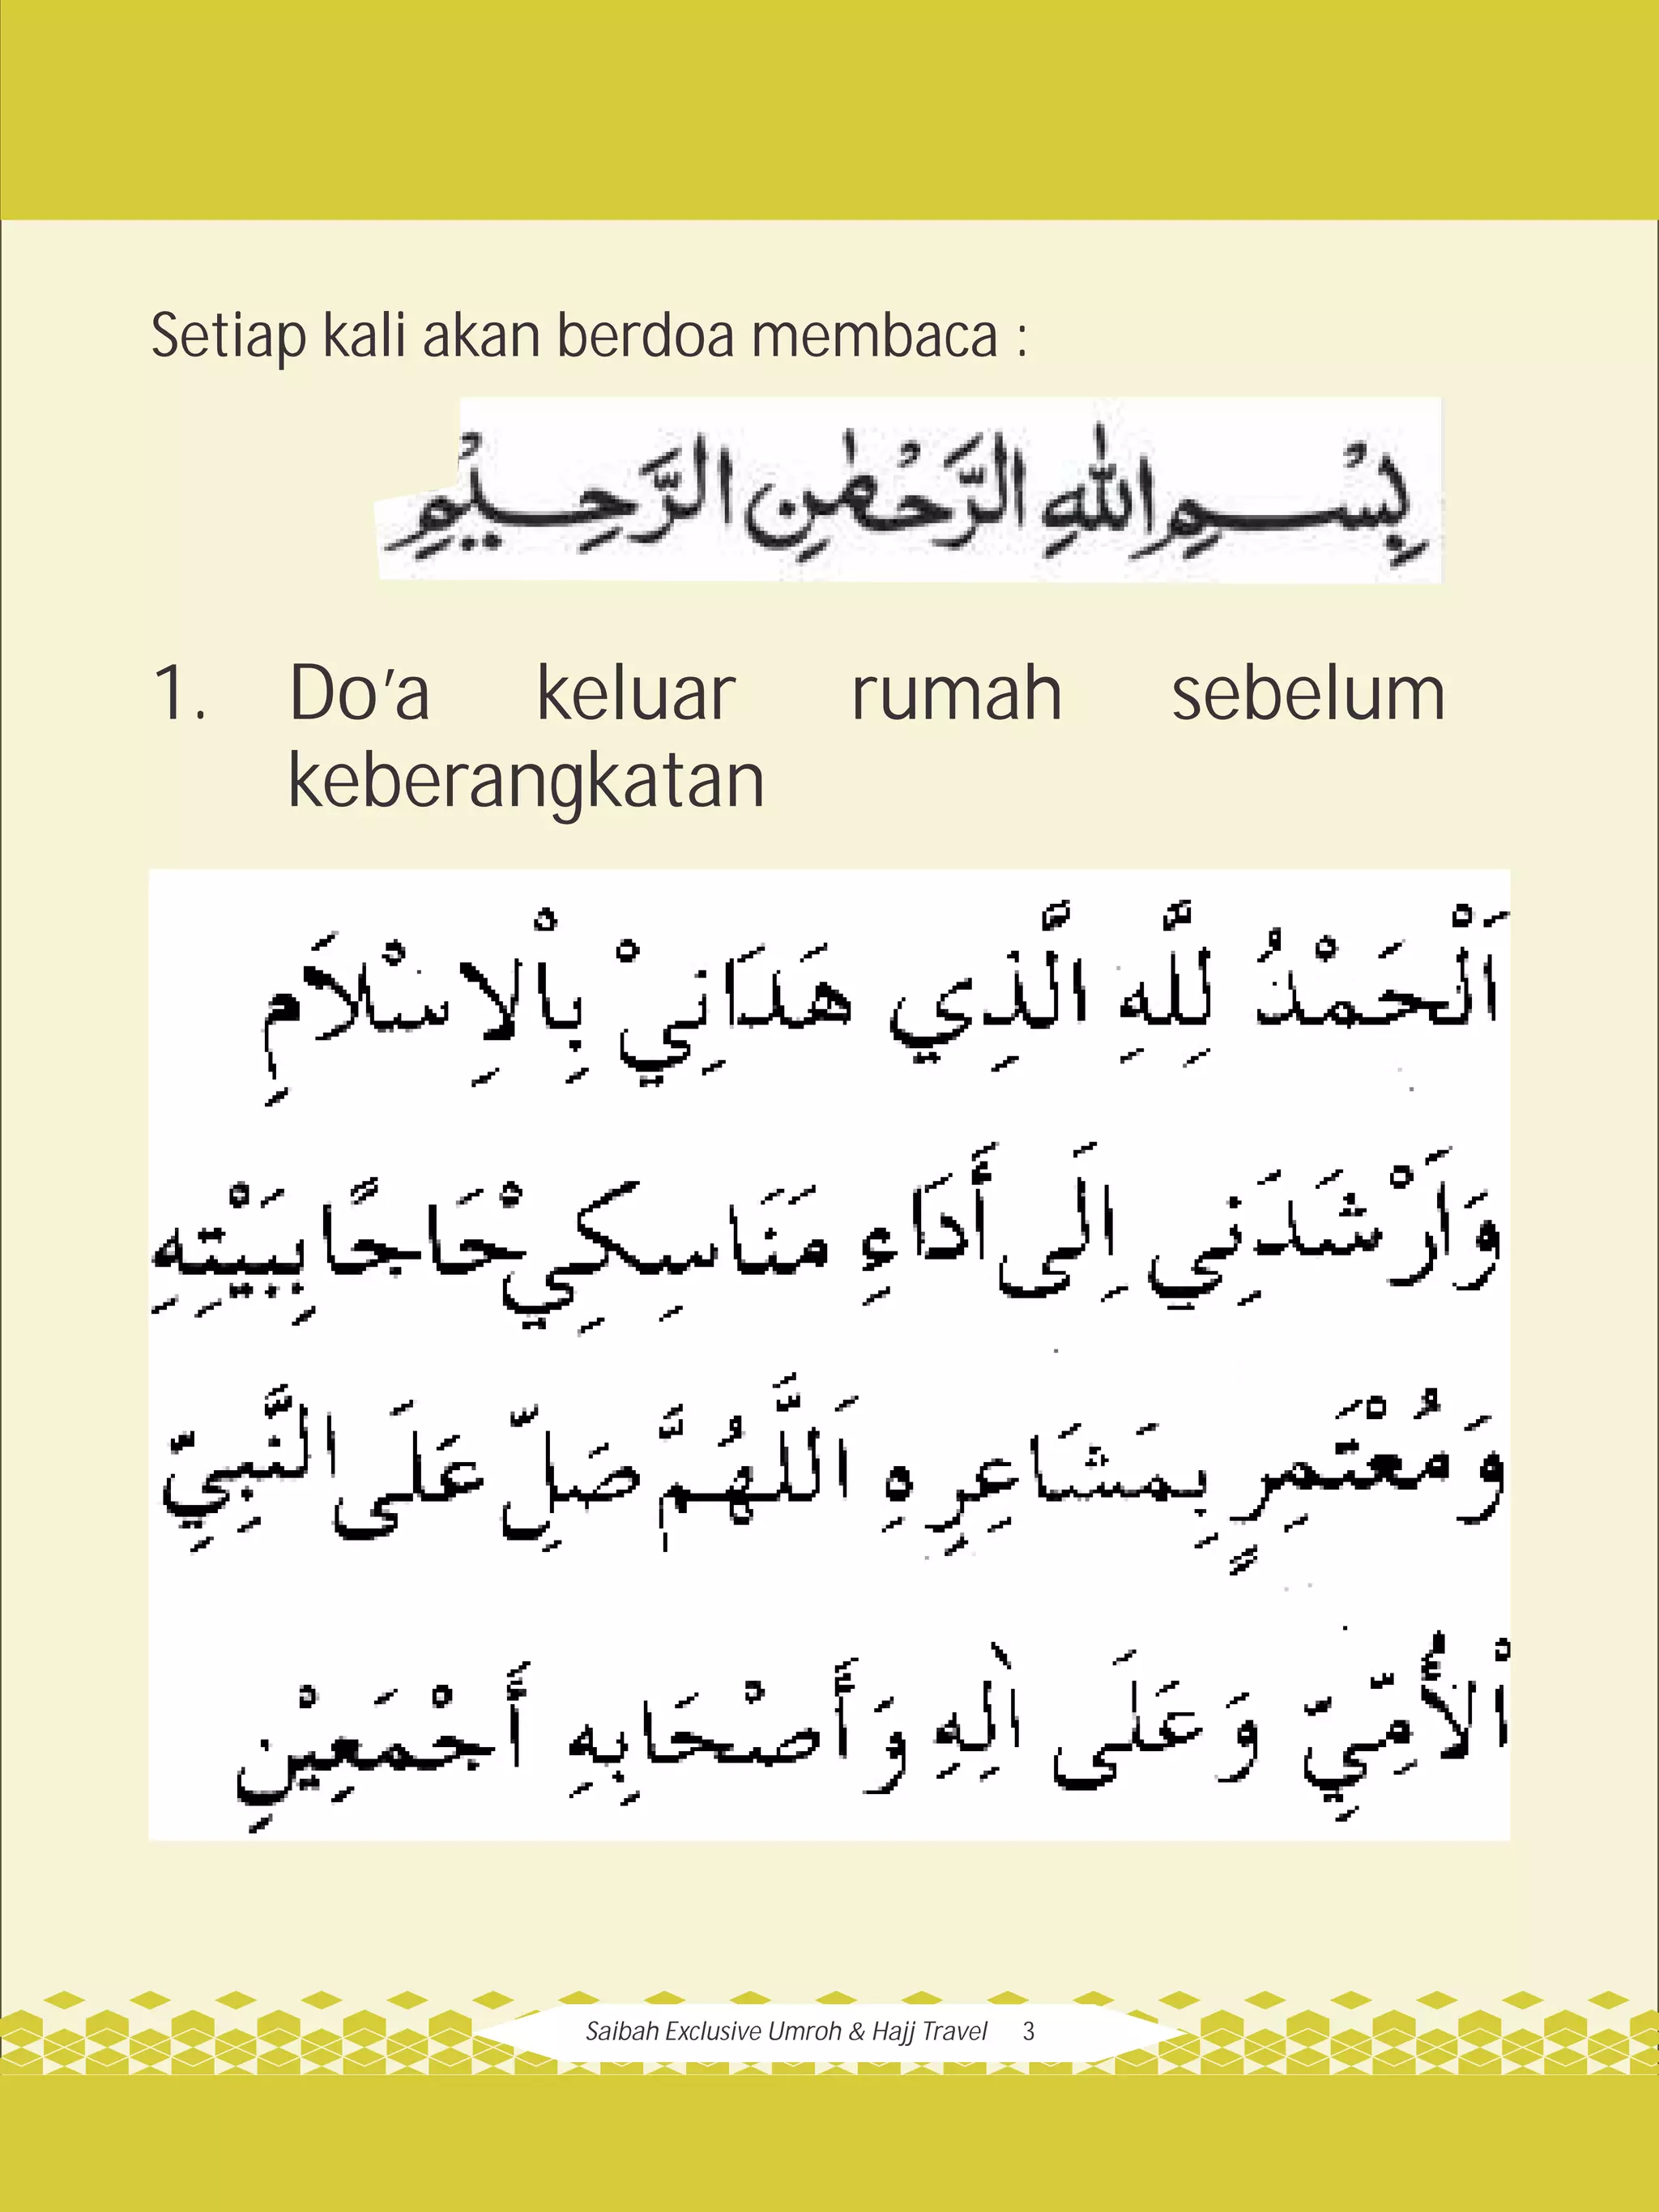 Setiap kali akan berdoa membaca :
بِسْمِ اللهِ الرَّحْمٰنِ الرَّحِيْمِ
1. Do’a keluar rumah sebelum
keberangkatan
اَلْحَمْدُ لِلَّهِ الَّذِي هَدَانِيْ بِاْلاِسْلَامِ
وَاَرْشَدَنِي اِلَى أَدَاءِ مَنَاسِكِيْ حَاجًا بِبَيْتِهِ
وَمُعْتَمِرٍ بِمَشَاعِرِهِ اَللَّهُمَّ صَلِّ عَلَى النَّبِيِّ
اْلأُمِّيِّ وَعَلَى اٰلِهِ وَأَصْحَابِهِ أَجْمَعِيْنِ
Saibah Exclusive Umroh & Hajj Travel 3